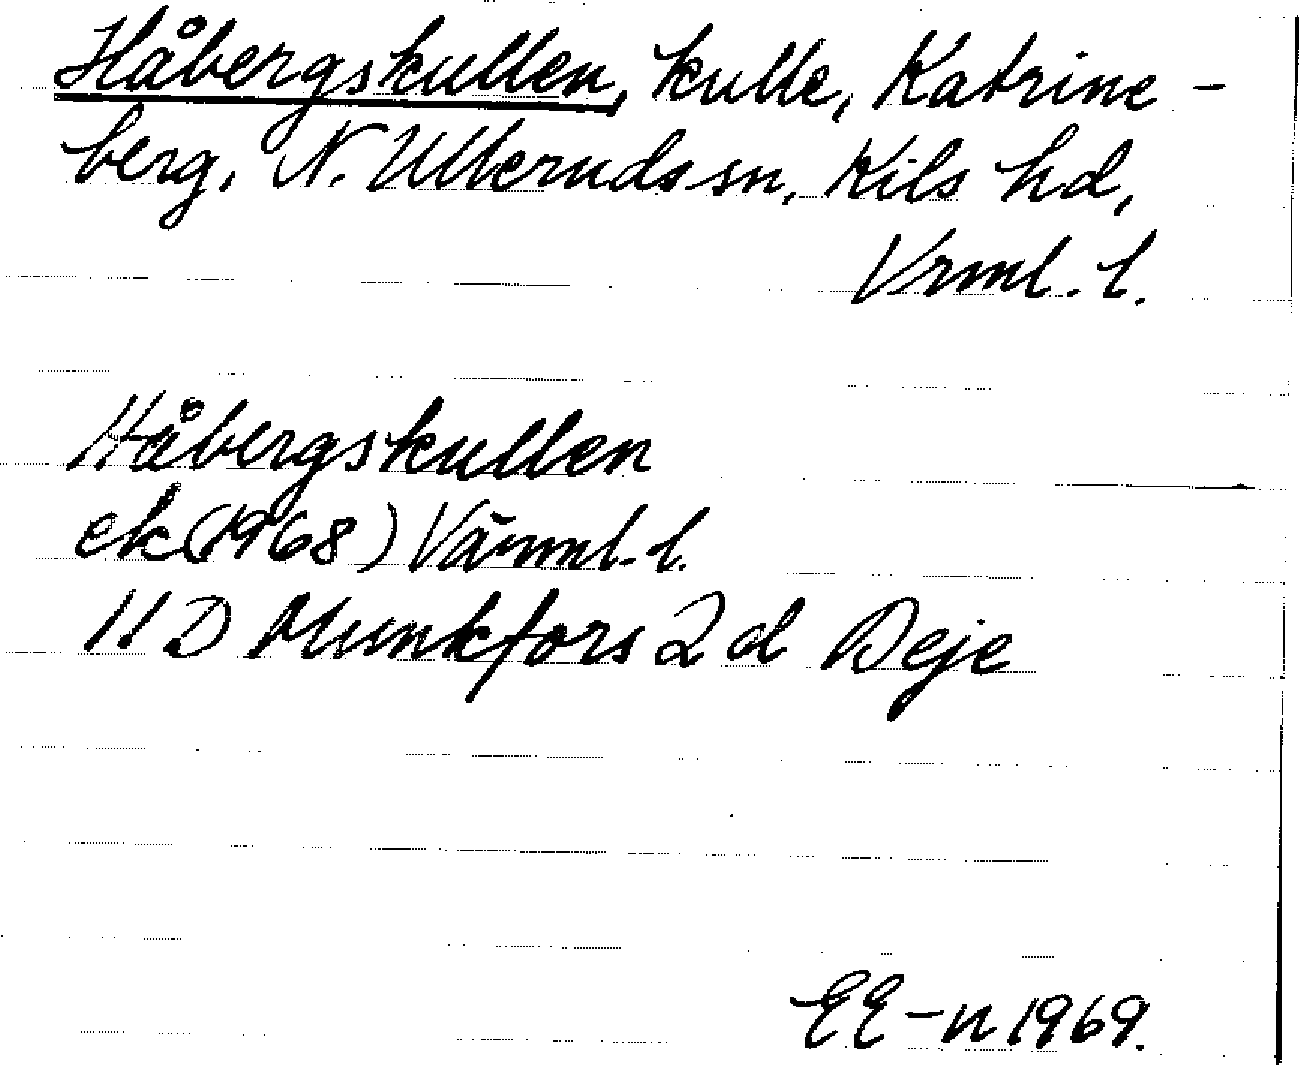 Håbergskullen, kulle, Katrine-
berg, N. Ulleruds sn, Kils hd,
Vrml. l.
Håbergskullen
ek (1968) Värml. l.
11 D Munkfors 2 d Deje
EE-n 1969.